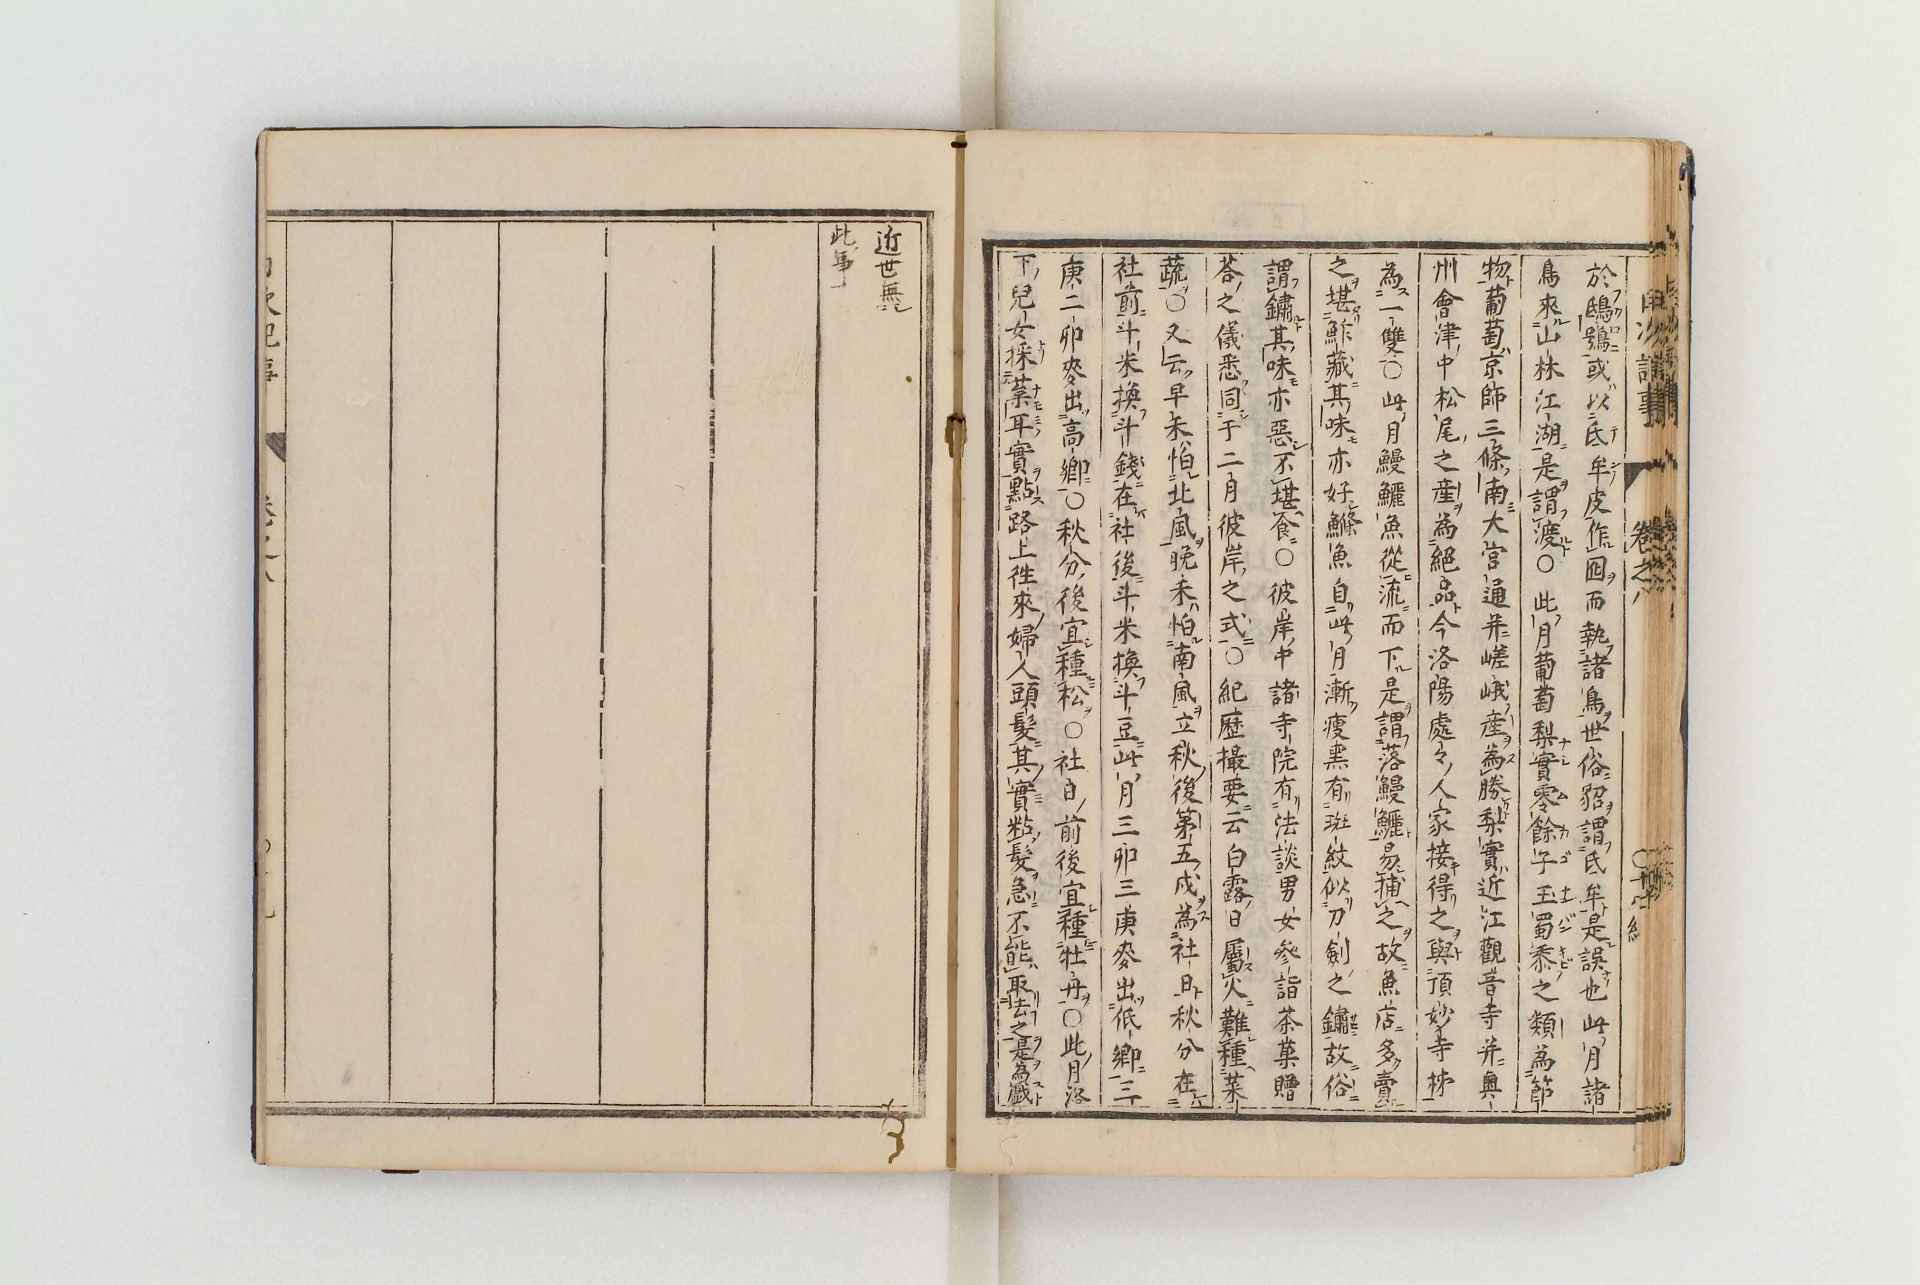 於鴟鵂或以氐牟皮作囮而執諸鳥世俗貂謂氐牟是誤也此月諸
鳥來山林江湖是謂渡○此月葡萄梨實零餘子玉蜀黍之類為節
物葡萄京師三條南大宮通并嵯峨產為勝梨實近江觀音寺并奧
州會津中松尾之産為絕品今洛陽處々人家接得之與頂妙寺柹
為一雙○此月鰻鱺魚從流而下是謂落鰻鱺易捕之故魚店多賣
之堪鮓藏其味亦好鰷魚自此月漸瘦黒有斑紋似刀劍之鏽故俗
謂鏽其味亦惡不堪食○彼岸中諸寺院有法談男女參詣茶菓贈
荅之儀悉同于二月彼岸之式○紀歷撮要云白露日屬火難種菜
蔬○又云早禾怕北風晚禾怕南風立秋後第五戍為社日秋分在
社前斗米換斗錢在社後斗米換斗豆此月三卯三庚麥出低鄉二
庚二卯麥出高鄉○秋分後宜種松○社日前後宜種牡丹○此月洛
下兒女採菜耳實點路上徃來婦人頭髮其實粘髮急不能取去之是為戲
近世無
此事
月次記事
卷之八
卷之八